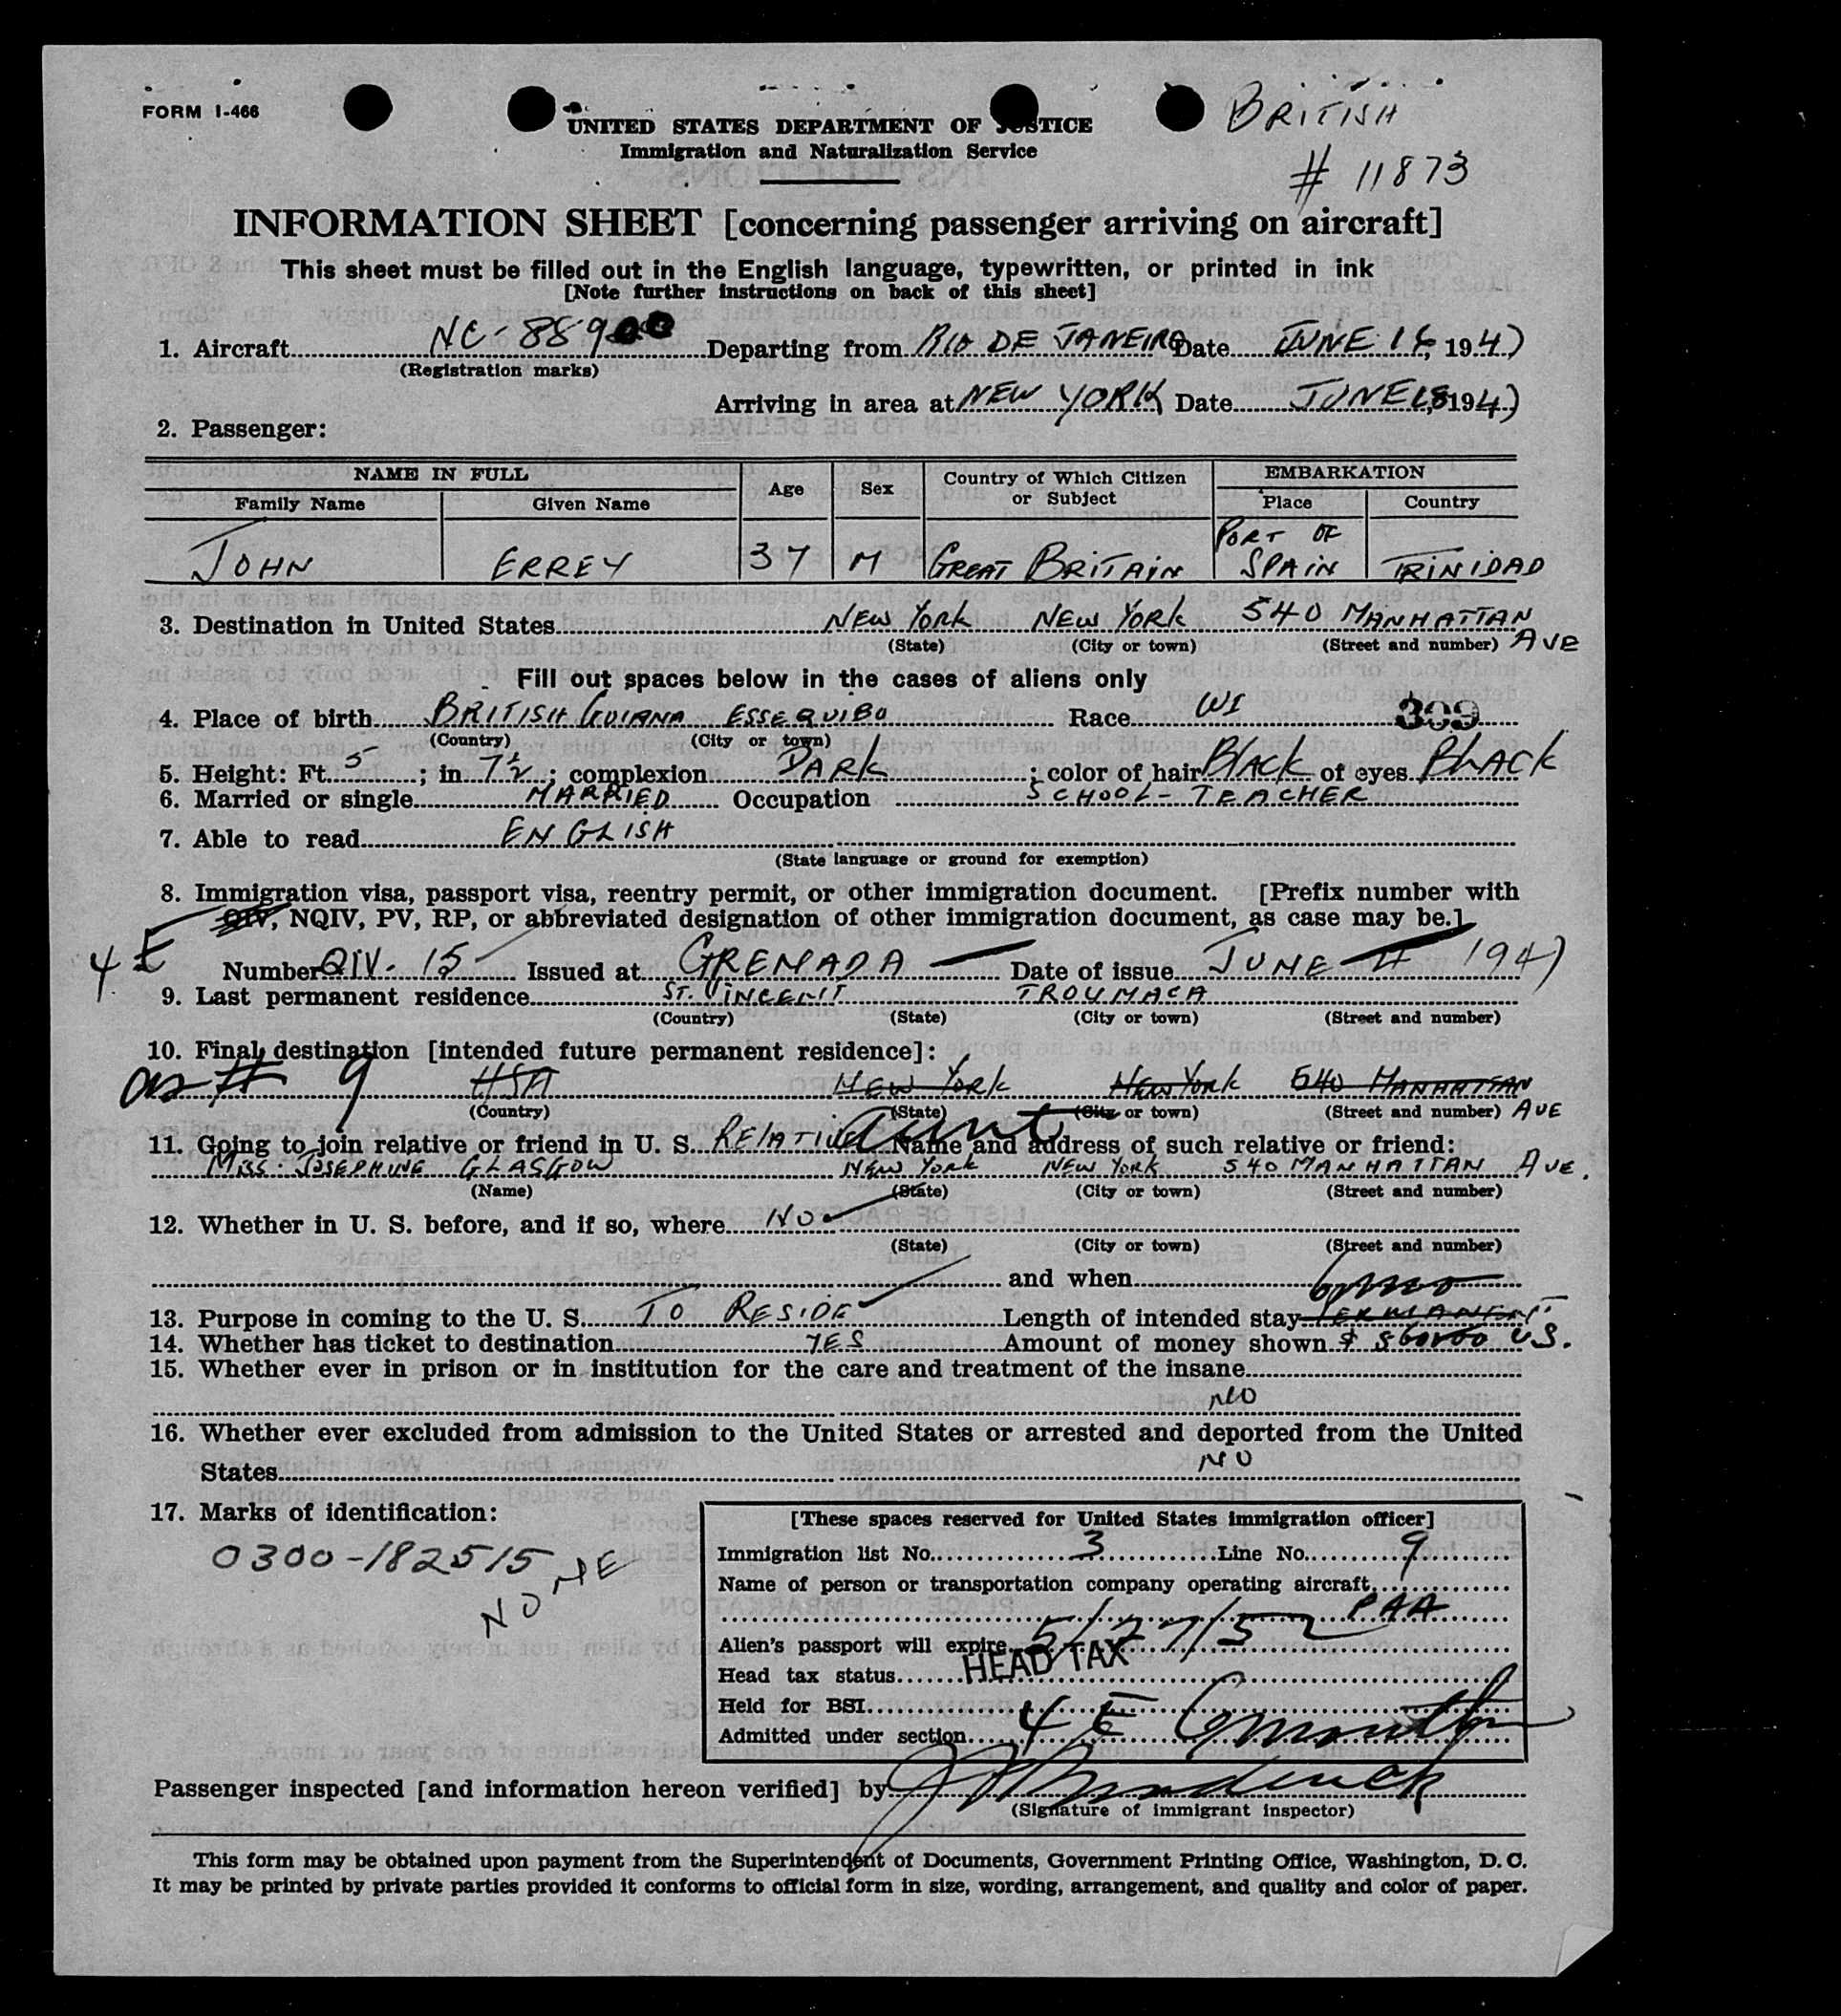 FORM I-466
UNITED STATES DEPARTMENT OF JUSTICE
Immigration and Naturalization Service
BRITISH
# 11873
INFORMATION SHEET [concerning passenger arriving on aircraft]
This sheet must be filled out in the English language, typewritten, or printed in ink
[Note further instructions on back of this sheet]
1. Aircraft NC-889 Departing from RIO DE JANEIRO Date JUNE 16, 1947
(Registration marks)
Arriving in area at NEW YORK Date JUNE 18, 1947
2. Passenger:
NAME IN FULL Age Sex Country of Which Citizen or Subject EMBARKATION
Family Name Given Name Place Country
JOHN ERREY 37 M GREAT BRITAIN PORT OF SPAIN TRINIDAD
3. Destination in United States NEW YORK NEW YORK 540 MANHATTAN AVE
(State) (City or town) (Street and number)
Fill out spaces below in the cases of aliens only
4. Place of birth BRITISH GUIANA ESSEQUIBO Race WI 309
(Country) (City or town)
5. Height: Ft. 5; in. 7½; complexion DARK; color of hair BLACK of eyes BLACK
6. Married or single MARRIED Occupation SCHOOL-TEACHER
7. Able to read ENGLISH
(State language or ground for exemption)
8. Immigration visa, passport visa, reentry permit, or other immigration document. [Prefix number with
QIV, NQIV, PV, RP, or abbreviated designation of other immigration document, as case may be.]
4 E
Number QIV-15 Issued at GRENADA Date of issue JUNE 1947
9. Last permanent residence ST. VINCENT TROUMACA
(Country) (State) (City or town) (Street and number)
10. Final destination [intended future permanent residence]:
as # 9 USA NEW YORK NEW YORK 540 MANHATTAN AVE
(Country) (State) (City or town) (Street and number)
11. Going to join relative or friend in U. S. RELATIVE Aunt Name and address of such relative or friend:
MISS. JOSEPHINE GLASGOW NEW YORK NEW YORK 540 MANHATTAN AVE.
(Name) (State) (City or town) (Street and number)
12. Whether in U. S. before, and if so, where NO
(State) (City or town) (Street and number)
and when
6 mo
13. Purpose in coming to the U. S. TO RESIDE Length of intended stay PERMANENT
14. Whether has ticket to destination YES Amount of money shown $ U.S.
15. Whether ever in prison or in institution for the care and treatment of the insane
NO
16. Whether ever excluded from admission to the United States or arrested and deported from the United
States NO
17. Marks of identification:
0300-182515
NONE
[These spaces reserved for United States immigration officer]
Immigration list No. 3 Line No. 9
Name of person or transportation company operating aircraft
PAA
Alien's passport will expire 5/27/52
Head tax status HEAD TAX
Held for BSI
Admitted under section 4 E 6 months
Passenger inspected [and information hereon verified] by
(Signature of immigrant inspector)
This form may be obtained upon payment from the Superintendent of Documents, Government Printing Office, Washington, D. C.
It may be printed by private parties provided it conforms to official form in size, wording, arrangement, and quality and color of paper.